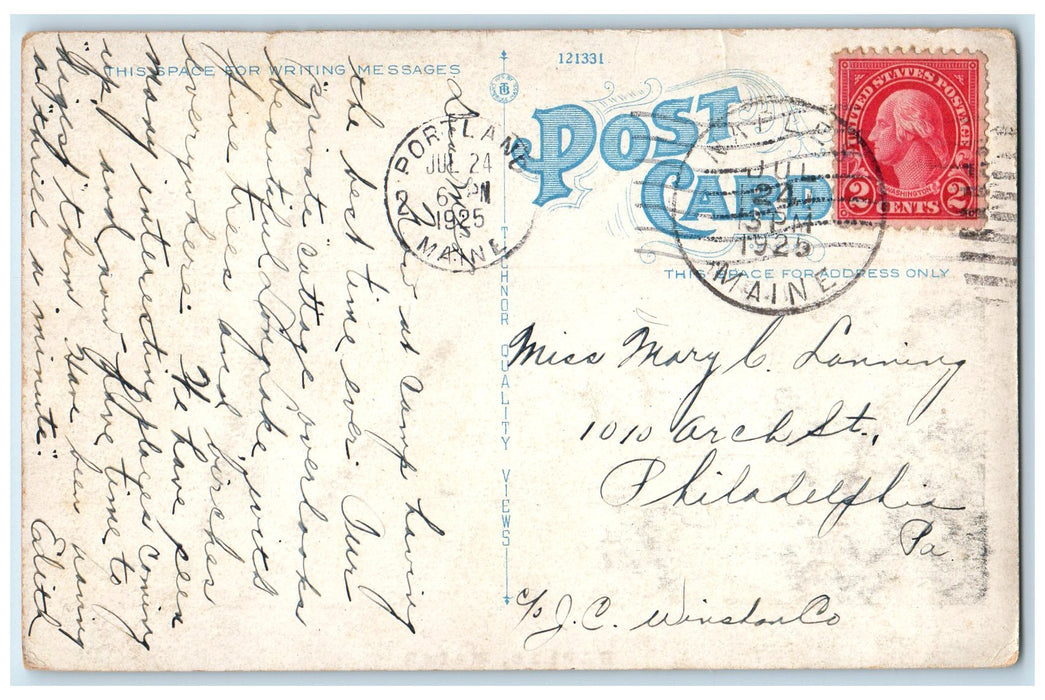 THIS SPACE FOR WRITING MESSAGES
121331
POST
CARD
UNITED STATES POSTAGE
WASHINGTON
2 CENTS 2
PORTLAND
JUL 24
6 PM
1925
MAINE
2
JUL
24
3 PM
1925
MAINE
THIS SPACE FOR ADDRESS ONLY
TICHNOR QUALITY VIEWS
at camp having
the best time ever. Our
private cottage overlooks
beautiful Long Lake, with
pine trees and birches
everywhere. We have seen
many interesting places coming
up, and now have time to
digest them. Have been gaining
a "thrill a minute."
Edith
Miss Mary C. Lanning
1010 Arch St.,
Philadelphia
Pa.
c/o J. C. Winston Co